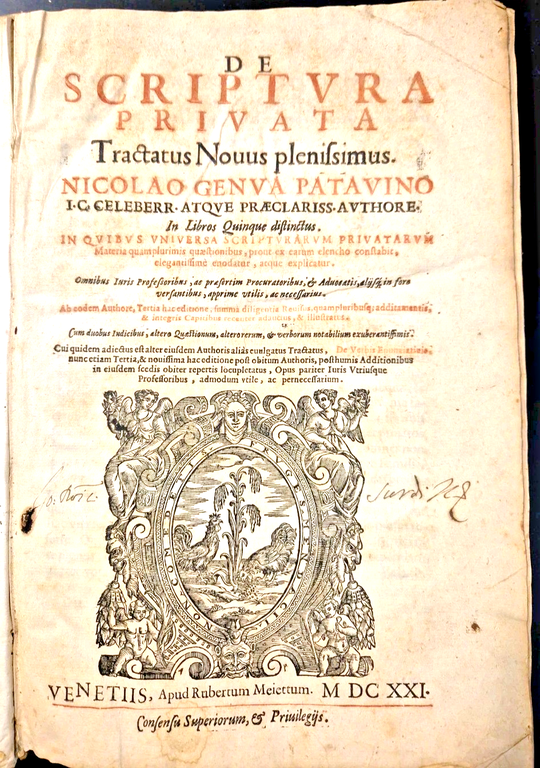 DE
SCRIPTVRA
PRIVATA
Tractatus Nouus plenissimus.
NICOLAO GENVA PATAVINO
I. C. CELEBERR. ATQVE PRÆCLARISS. AVTHORE.
In Libros Quinque distinctus.
IN QVIBVS VNIVERSA SCRIPTVRARVM PRIVATARVM
Materia quamplurimis quæstionibus, prout ex earum elencho constabit,
elegantissimè enodatur, atque explicatur.
Omnibus Iuris Professoribus, ac præsertim Procuratoribus, & Aduocatis, alijsq; in foro
versantibus, apprimè vtilis, ac necessarius.
Ab eodem Authore, Tertia hac editione, summa diligentia Reuisus, quampluribusq; additamentis,
& integris Capitibus adauctus, & illustratus.
Cum duobus Indicibus, altero Quæstionum, altero rerum, & verborum notabilium exuberantissimis.
Cui quidem adiectus est alter eiusdem Authoris aliàs euulgatus Tractatus, De Verbis
nunc etiam Tertia, & nouissima hac editione post obitum Authoris, posthumis Additionibus
in eiusdem scedis obiter repertis locupletatus, Opus pariter Iuris Vtriusque
Professoribus, admodum vtile, ac pernecessarium.
VENETIIS, Apud Rubertum Meiettum. M DC XXI.
Consensu Superiorum, & Priuilegijs.